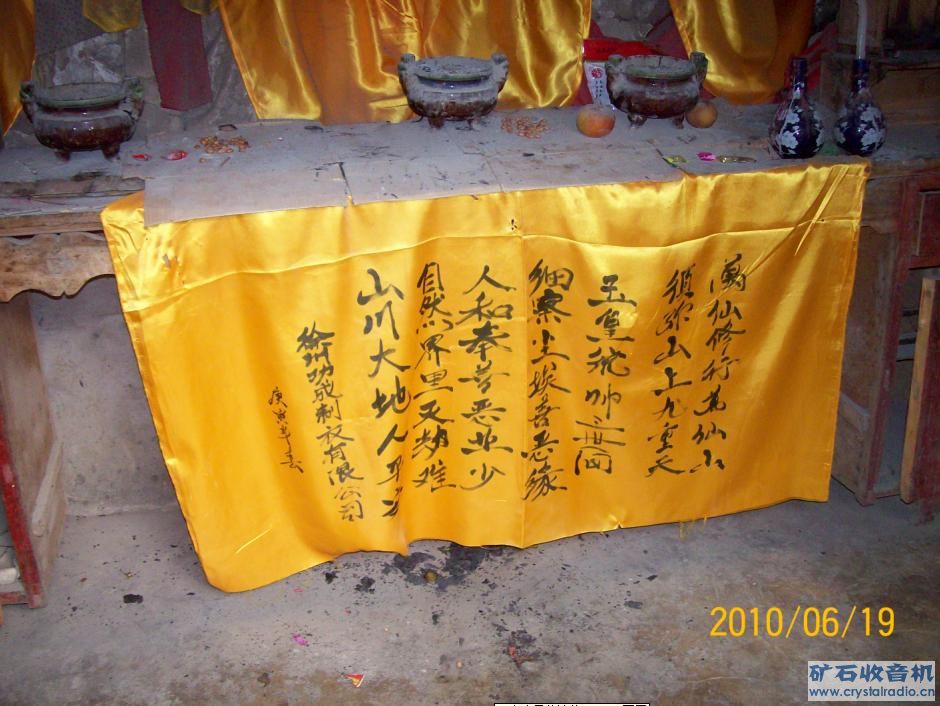 萬仙修行萬仙山
须弥山上九重天
玉皇统帅三世间
细察尘埃善恶缘
人和奉善恶业少
自然界里灭劫难
山川大地人平安
徐州功成制衣有限公司
庚寅年春
2010/06/19
矿石收音机
www.crystalradio.cn